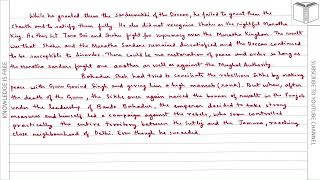 While he granted them the Sardeshmukhi of the Deccan, he failed to grant them the
Chauth and to satisfy them fully. He also did not recognize Shahu as the rightful Maratha
King. He thus let Tara Bai and Shahu fight for supremacy over the Maratha Kingdom. The result
was that Shahu and the Maratha Sardars remained dissatisfied and the Deccan continued
to be susceptible to disorder. There could be no restoration of peace and order so long as
the Maratha Sardars fought one another as well as against the Mughal Authority.
Bahadur Shah had tried to conciliate the rebellious Sikhs by making
peace with Guru Gobind Singh and giving him a high mansab (rank). But when, after
the death of the Guru, the Sikhs once again raised the banner of revolt in the Punjab
under the leadership of Banda Bahadur, the emperor decided to take strong
measures and himself led a campaign against the rebels, who soon controlled
practically the entire territory between the Sutlej and the Jamuna, reaching the
close neighbourhood of Delhi. Even though he succeeded
KNOWLEDGE IS FREE
SUBSCRIBE TO YOUTUBE CHANNEL